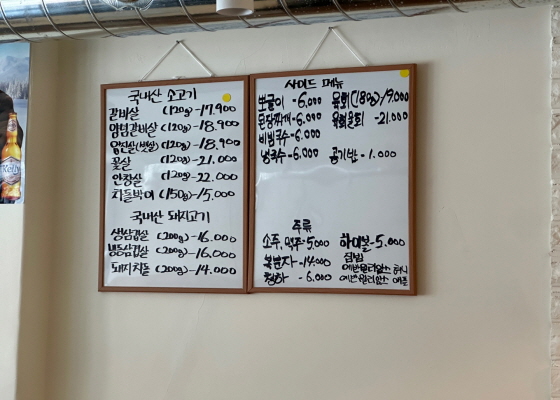 국내산 소고기
갈비살 (120g) -17.900
(120g) -18.900
(120g) -18.900
꽃살 (120g) -21.000
안창살 (120g) -22.000
차돌박이 (150g) -15.000
국내산 돼지고기
생삼겹살 (200g) -16.000
냉동삼겹살 (200g) -16.000
돼지차돌 (200g) -14.000
사이드 메뉴
뽀글이 -6.000 육회 (180g) 19.000
된장찌개 -6.000 -21.000
비빔국수 -6.000
냉국수 -6.000 공기밥 -1.000
주류
소주, 맥주 -5.000 하이볼 -5.000
복분자 -14.000 짐빔
청하 -6.000
Kelly